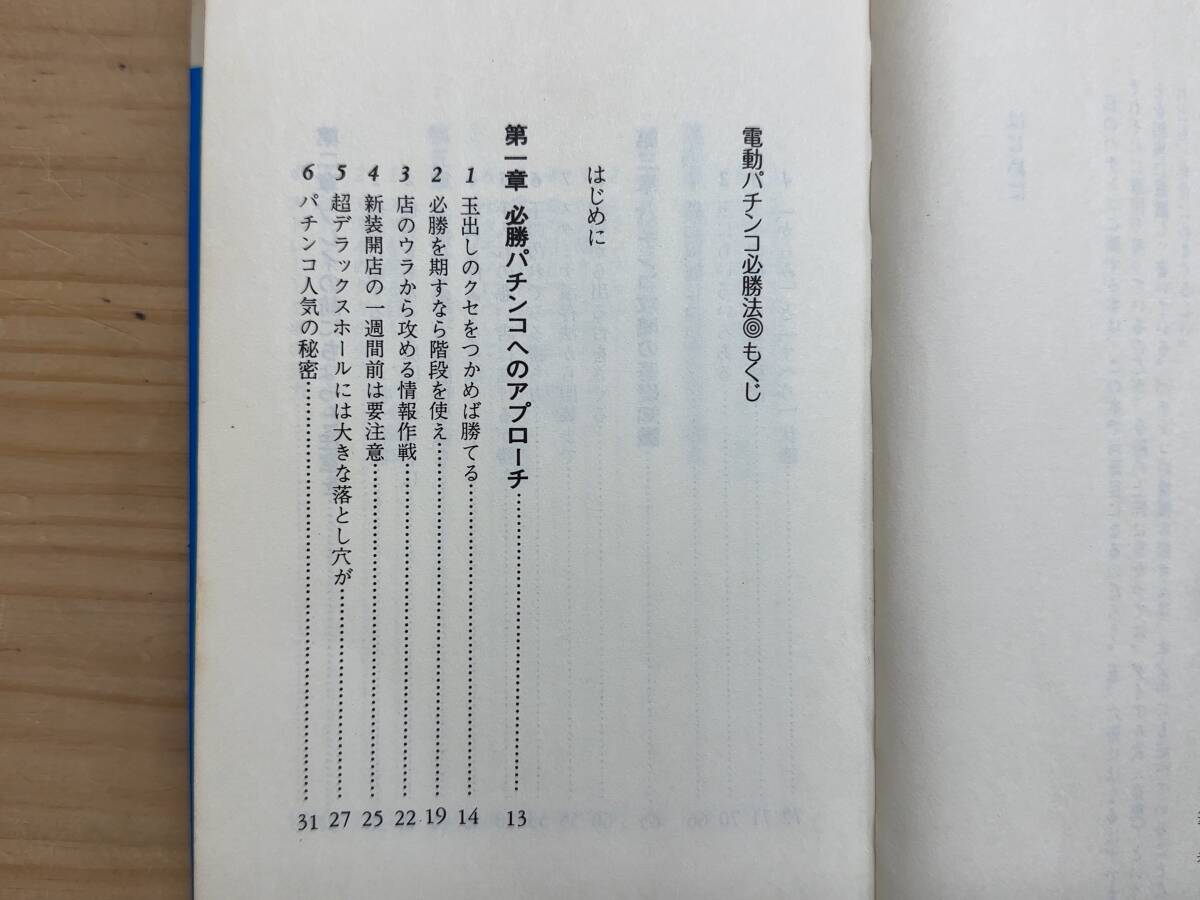 電動パチンコ必勝法◎もくじ
はじめに
第一章 必勝パチンコへのアプローチ……………………13
1 玉出しのクセをつかめば勝てる……………………14
2 必勝を期すなら階段を使え……………………19
3 店のウラから攻める情報作戦……………………22
4 新装開店の一週間前は要注意……………………25
5 超デラックスホールには大きな落とし穴が……………………27
6 パチンコ人気の秘密……………………31